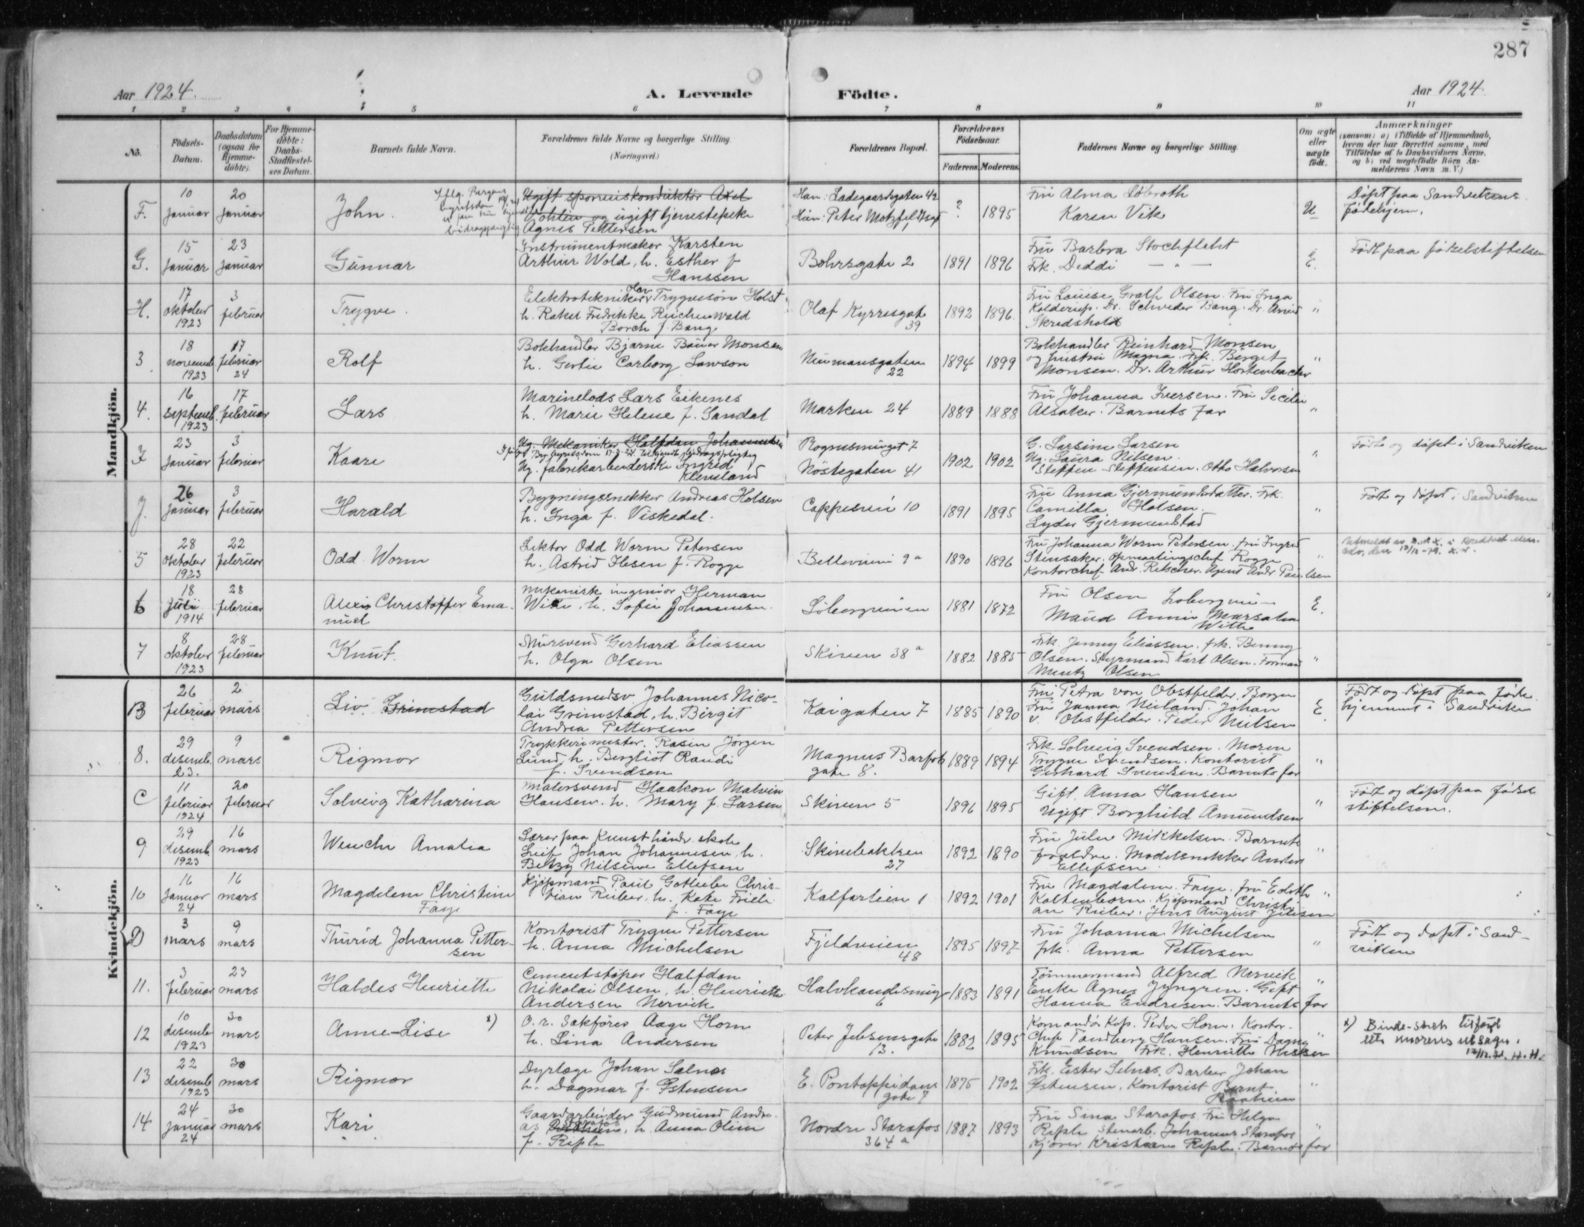 287
Aar 1924.
A. Levende Födte.
Aar 1924.
1 2 3 4 5 6 7 8 9 10 11
No.
Födsels-Datum.
Daabsdatum (ogsaa for Hjemme-döbte).
For Hjemme-döbte: Daabs-Stadfæstel-ses Datum.
Barnets fulde Navn.
Forældrenes fulde Navne og borgerlige Stilling (Næringsvei.)
Forældrenes Bopæl.
Forældrenes Födselsaar.
Faderens. Moderens.
Faddernes Navne og borgerlige Stilling.
Om ægte eller uægte födt.
Anmærkninger
Mandkjön.
F. 10 januar 20 januar John.
Ugift sporveiskonduktør Axel
og ugift tjenestepike
Agnes Pettersen
Han: Ladegaardsgaten 42
? 1895
Fru Alma
Karen Vik
U
Døpt paa Sandvikens
fødehjem.
G. 15 januar 23 januar Gunnar
Instrumentmaker Karsten
Arthur Wold, h. Esther f.
Hanssen
Bohrsgate 2 1891 1896
Fru Barbra Stockfleht
Frk. Deddi — " —
E.
Født paa fødselstiftelsen
H. 17 oktober 1923 3 februar Trygve.
Trygvesøn Holst
h. Rakel Fredrikke Reichenwald
Borch f. Bang
Olaf Kyrresgat 39 1892 1896
Fru Louise Grath Olsen. Fru Inga
Kolderup. Dr. Schrøder Bang. Dr. Arvid
Skredshold
"
3 18 novemb. 1923 17 februar 24 Rolf
Bokhandler Bjarne Bauer Monsen
h. Gertie Carborg Lawson
Neumansgaten 22 1894 1899
Bokhandler Reinhard Monsen
og hustru Magna. Frk. Berget
Monsen. Dr. Arthur
"
4. 16 septemb. 1923 17 februar Lars
Marinelods Lars Eikenes
h. Marie Helene f. Sandal
Marken 24 1889 1888
Fru Johanna Iversen. Fru Secilie
Alsaker. Barnets far
"
I 23 januar 3 februar Kaare
Ug. Mekaniker Halfdan Johannessen
Ug. fabrikarbeiderske Ingrid
Kleveland
7
Nøstegaten 41
1902 1902
G. Larsine Larsen
Ug. Laura Nilsen.
Steffen Steffensen. Otto Halvorsen
"
Født og døpt i Sandviken
J. 26 januar 3 februar Harald
Bygningssnekker Andreas Holsen
h. Inga f. Viskedal.
Cappesvei 10 1891 1895
Fru Anna Gjermundstatter. Frk.
Camilla Holsen.
Lyder Gjermundstad
"
Født og døpt i Sandviken
5 28 oktober 1923 22 februar Odd Worm
Lektor Odd Worm Petersen
h. Astrid Ihesen f. Rogge
Bellevuevei 9a 1890 1896
Fru Johanna Worm Petersen. Fru Ingrid
Stensaker. Opmaalingschef Rogge
Kontorchef Andr. Ritcher. Agent Andr. Paulsen
"
6 18 juli 1914 28 februar Alexis Christoffer Ema-
nuel
Mekanisk ingeniør Herman
Witte. h. Sofie Johannesen
1881 1872
Fru Olsen
Maud Annie Marsalia
Witte
E.
7 8 oktober 1923 28 februar Knut.
Mursvend Gerhard Eliassen
h. Olga Olsen
Skiven 38a 1882 1885
Frk. Jenny Eliassen. Frk. Benny
Olsen. Styrmand Karl Olsen. Formand
Mentz Olsen
"
Kvindekjön.
B 26 februar 2 mars Liv Grimstad
Guldsmedsv Johannes Nico-
lai Grimstad, h. Birgit
Andrea Pettersen
Kaigaten 7 1885 1890
Fru Petra von Obstfelder. Borger
Fru Janna Nieland. Johan
v. Obstfelder. Peder Nielsen
E.
Født og døpt paa føde-
hjemmet i Sandviken
8. 29 desemb. 23. 9 mars Rigmor
Trykkerimester. Rasm Jørgen
Lund h. Bergliot Randi
f. Svendsen
Magnus Barfots gate 8. 1889 1894
Frk. Solveig Svendsen. Moren
Trygve Svendsen. Kontorist
Gerhard Svendsen. Barnets far
"
C 11 februar 1924 20 februar Solveig Katharina
Malersvend Haakon Malvin
Hansen. h. Mary f. Larsen
Skiven 5 1896 1895
Gift Anna Hansen
Ugift Borghild Amundsen
"
Født og døpt paa fødsel-
stiftelsen.
9 29 desemb. 1923 16 mars Wenche Amalia
Lærer paa Kunsthåndv. skole
Leif Johan Johannesen h.
Betzy Nilsine Ellefsen
27 1892 1890
Fru Julie Mikkelsen. Barnets
foreldre. Modelsnekker Anders
Ellefsen
"
10 16 januar 24 16 mars Magdelene Christine
Faye
Kjøpmand Paul Gotlieb Chris-
tian Rieber. h. Kate Friele
f. Faye
Kalfarlien 1 1892 1901
Fru Magdalene Faye. Fru Edith
Koltenborn. Kjøpmand Christi-
an Rieber. Jens August Jebsen
"
D 3 mars 9 mars Thurid Johanna Petter-
sen
Kontorist Trygve Pettersen
h. Anna Michelsen
Fjeldveien 48 1895 1897
Fru Johanna Michelsen
frk. Anna Pettersen
"
Født og døpt i Sand-
viken
11. 3 februar 23 mars Haldes Henriette
Cementstøper Halfdan
Nikolai Olsen, h. Henriette
Andersen Nervik
Halvkandesmug 6 1883 1891
Tømmermand Alfred Nervik
Enke Agnes Jyngren. Gift
Hanna Endresen. Barnets far
"
12 10 desemb. 1923 30 mars Anne-Lise x)
O. r. Sakfører Aage Horn
h. Lina Andersen
Peter Jebsensgate 13. 1882 1895
Komandør Kap. Peder Horn. Kontor-
chef Tandberg Hansen. Fru Dagny
Knudsen Frk. Henriette
x) Binde-strek tilføyd
etter morens utsagn.
H. H.
13 22 desemb. 1923 30 mars Rigmor
Dyrlæge Johan Selnes
h. Dagmar f. Østensen
E. Pontoppidans gate 7 1875 1902
Frk. Ester Selnes. Barber Johan
Østensen. Kontorist Bernt
"
14 24 januar 24 30 mars Kari
Gaardarbeider Gudmund Andre-
as h. Anna Oline
f. Refsle
Nordre Starefos 364a 1887 1893
Fru Sina Starefos Fru Helga
Refsle Stenarb. Johannes Starefos
Kjører Kristian Refsle. Barnets far
"